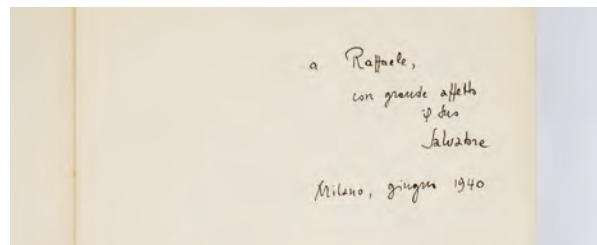 a Raffaele,
con grande affetto
il suo
Salvatore
Milano, giugno 1940